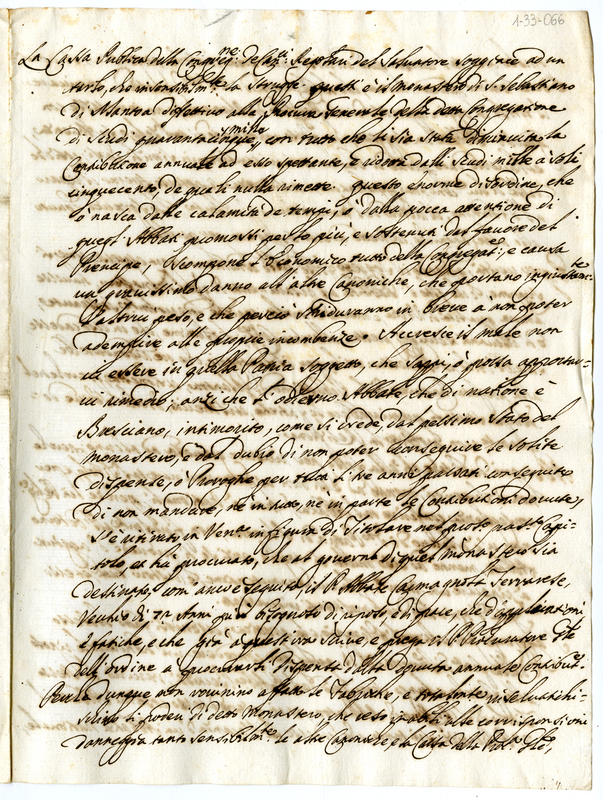 1-33-066
La Cassa Publica della Congreg.ne de Can.ci Regolari del Salvatore soggiace ad un
tarlo, che insensibilm.te la strugge. questi è il Monastero di S. Sebastiano
di Mantoa difettivo alla Procura Generale della detta Congregatione
di Scudi quarantacinque mila, con tutto che li sia stata diminuita la
Contributione annuale ad esso spettante, e ridotta dalli Scudi mille à soli
cinquecento, de quali nulla rimette. questo enorme disordine, che
ò nasca dalle calamità de tempi, ò dalla pocca attentione di
quegl' Abbati promossi per lo più, e sostenuti dal favore del
Prencipe, scompone l' Economico tutto della Congregat.e; e causa
un gravissimo danno all' altre Canoniche, che portano ingiustam.te
l'altrui peso, e che perciò si riduranno in breve à non poter
adempire alle proprie incombenze. Accresce il male non
vi essere in quella Patria soggetto, che sappi, ò possa apportar-
vi rimedio; anzi che l' odierno Abbate, che di natione è
Bresciano, intimorito, come si crede, dal pessimo stato del
monastero, ò dal dubio di non poter conseguire le solite
dispense, ò Proroghe per tutti li tre anni passati conseguite
di non mandare, nè in tutto, nè in parte le Contributioni dovute,
s'è ritirato in Ven.a in figura di Titolare nel prossimo passato Capi-
tolo, et hà procurato, che al governo di quel monastero sia
destinato, com' anco è seguito, il P. Abbate Ferrarese,
Vechio di 72 Anni più bisognoso di riposo, e di pace, che d'applicationi
e fatiche, e che già a quest'ora scrive, e prega il P. Procuratore G.le
dell' ordine a procurarli dispensa dalla dovuta annuale Contribut.e
Perche dunque non rovinino affatto le Fabriche, e totalmente inselvatichi-
schino li poderi di detto Monastero, che reso inabile alle corrisponsioni
danneggia tanto sensibilm.te le altre Canoniche, e la Cassa della Proc.a G.le,